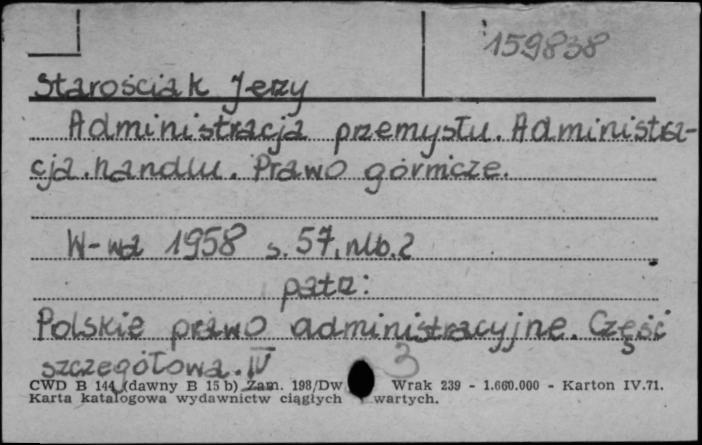 159838
Starościak Jerzy
Administracja przemysłu. Administra-
cja handlu. Prawo górnicze.
W-wa 1958 s. 57, nlb. 2
patrz:
Polskie prawo administracyjne. Część
szczegółowa. IV 3
CWD B 144 (dawny B 15 b) Zam. 198/Dw Wrak 239 - 1.660.000 - Karton IV.71.
Karta katalogowa wydawnictw ciągłych wartych.